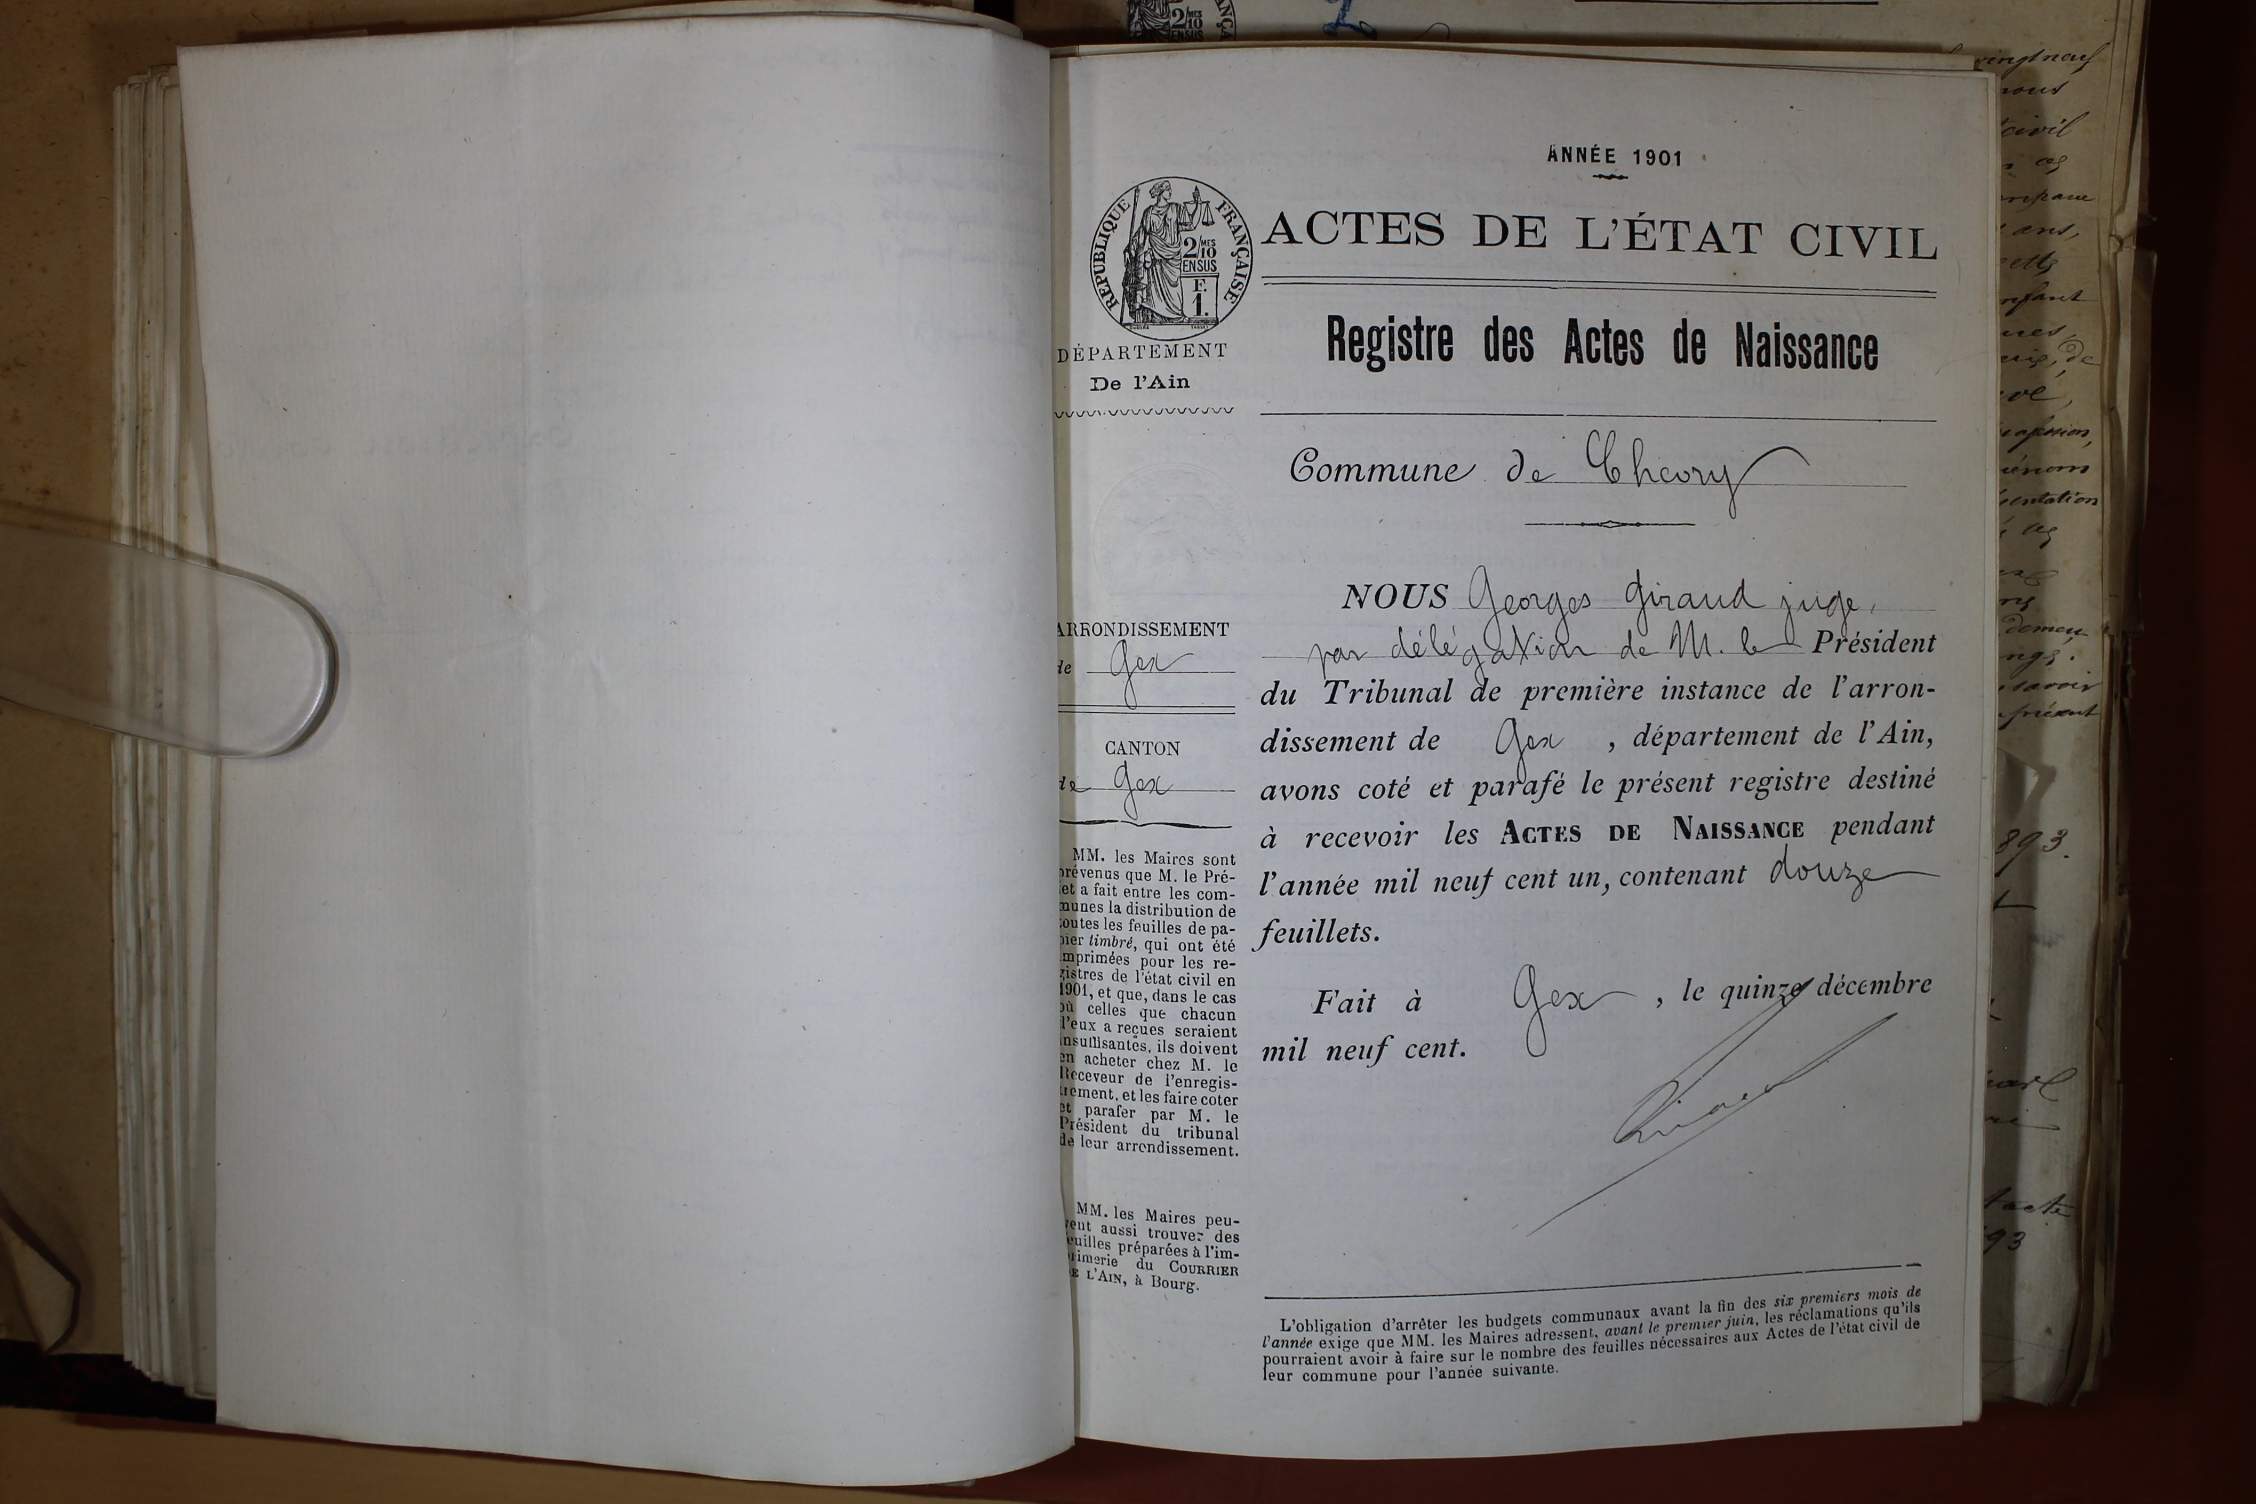 ANNÉE 1901
RÉPUBLIQUE FRANÇAISE
2/MES
10
EN SUS
F.
1.
ACTES DE L'ÉTAT CIVIL
Registre des Actes de Naissance
DÉPARTEMENT
De l'Ain
Commune de Chevry
ARRONDISSEMENT
de Gex
CANTON
de Gex
MM. les Maires sont
prévenus que M. le Pré-
fet a fait entre les com-
munes la distribution de
toutes les feuilles de pa-
pier timbré, qui ont été
imprimées pour les re-
gistres de l'état civil en
1901, et que, dans le cas
où celles que chacun
d'eux a reçues seraient
insuffisantes, ils doivent
en acheter chez M. le
Receveur de l'enregis-
trement, et les faire coter
et parafer par M. le
Président du tribunal
de leur arrondissement.
MM. les Maires peu-
vent aussi trouver des
feuilles préparées à l'im-
primerie du COURRIER
DE L'AIN, à Bourg.
NOUS Georges Giraud juge,
par délégation de M. le Président
du Tribunal de première instance de l'arron-
dissement de Gex , département de l'Ain,
avons coté et parafé le présent registre destiné
à recevoir les ACTES DE NAISSANCE pendant
l'année mil neuf cent un, contenant douze
feuillets.
Fait à Gex , le quinze décembre
mil neuf cent.
L'obligation d'arrêter les budgets communaux avant la fin des six premiers mois de
l'année exige que MM. les Maires adressent, avant le premier juin, les réclamations qu'ils
pourraient avoir à faire sur le nombre des feuilles nécessaires aux Actes de l'état civil de
leur commune pour l'année suivante.